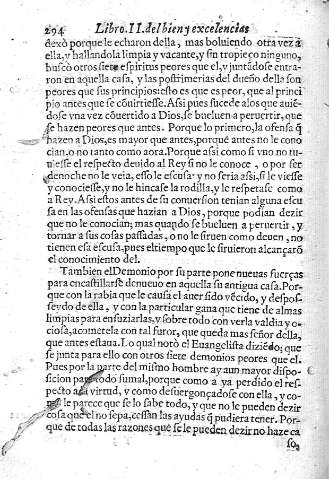 294 Libro. II. del bien y excelencias
dexò porque le echaron della, mas boluiendo otra vez a
ella, y hallandola limpia y vacante, y sin tropieço ninguno,
buscò otros siete espiritus peores que el, y juntãdose entra-
ron en aquella casa, y las postrimerias del dueño della son
peores que sus principios: esto es que es peor, que al princi
pio antes que se cõuirtiesse. Assi pues sucede a los que auiẽ-
dose vna vez cõuertido a Dios, se bueluen a peruertir, que
se hazen peores que antes. Porque lo primero, la ofensa q̃
hazen a Dios, es mayor que antes, porque antes no le cono
cian. o no tanto como aora. Porque assi como si vno no tu-
uiesse el respecto deuido al Rey si no le conoce, o por ser
de noche no le veia, esso le escusa y no seria assi, si le viesse
y conociesse, y no le hincasse la rodilla, y le respetasse como
a Rey. Assi estos antes de su conuersion tenian alguna escu
sa en las ofensas que hazian a Dios, porque podian dezir
que no le conocian; mas quando se bueluen a peruertir, y
tornar a sus cosas passadas, o no le siruen como deuen, no
tienen essa escusa, pues el tiempo que le siruieron alcançarõ
el conocimiento del.
Tambien el Demonio por su parte pone nueuas fuerças
para encastillarse de nueuo en aquella su antigua casa. Por-
que con la rabia que le causa el auer sido vẽcido, y despos-
seydo de ella, y con la particular gana que tiene de almas
limpias para ensuziarlas, y sobre todo con verla valdia y o-
ciosa, acometela con tal furor, que queda mas señor della,
que antes estaua. Lo qual notò el Euangelista diziẽdo; que
se junta para ello con otros siete demonios peores que el.
Pues por la parte del mismo hombre ay aun mayor dispo-
sicion para todo su mal, porque como a ya perdido el res-
pecto a la virtud, y como desuergonçadose con ella, y co-
mo le parece que se lo sabe todo, y que no le pueden dezir
cosa que el no sepa, cessan las ayudas q̃ pudiera tener. Por-
que de todas las razones que se le pueden dezir no haze ca
so,